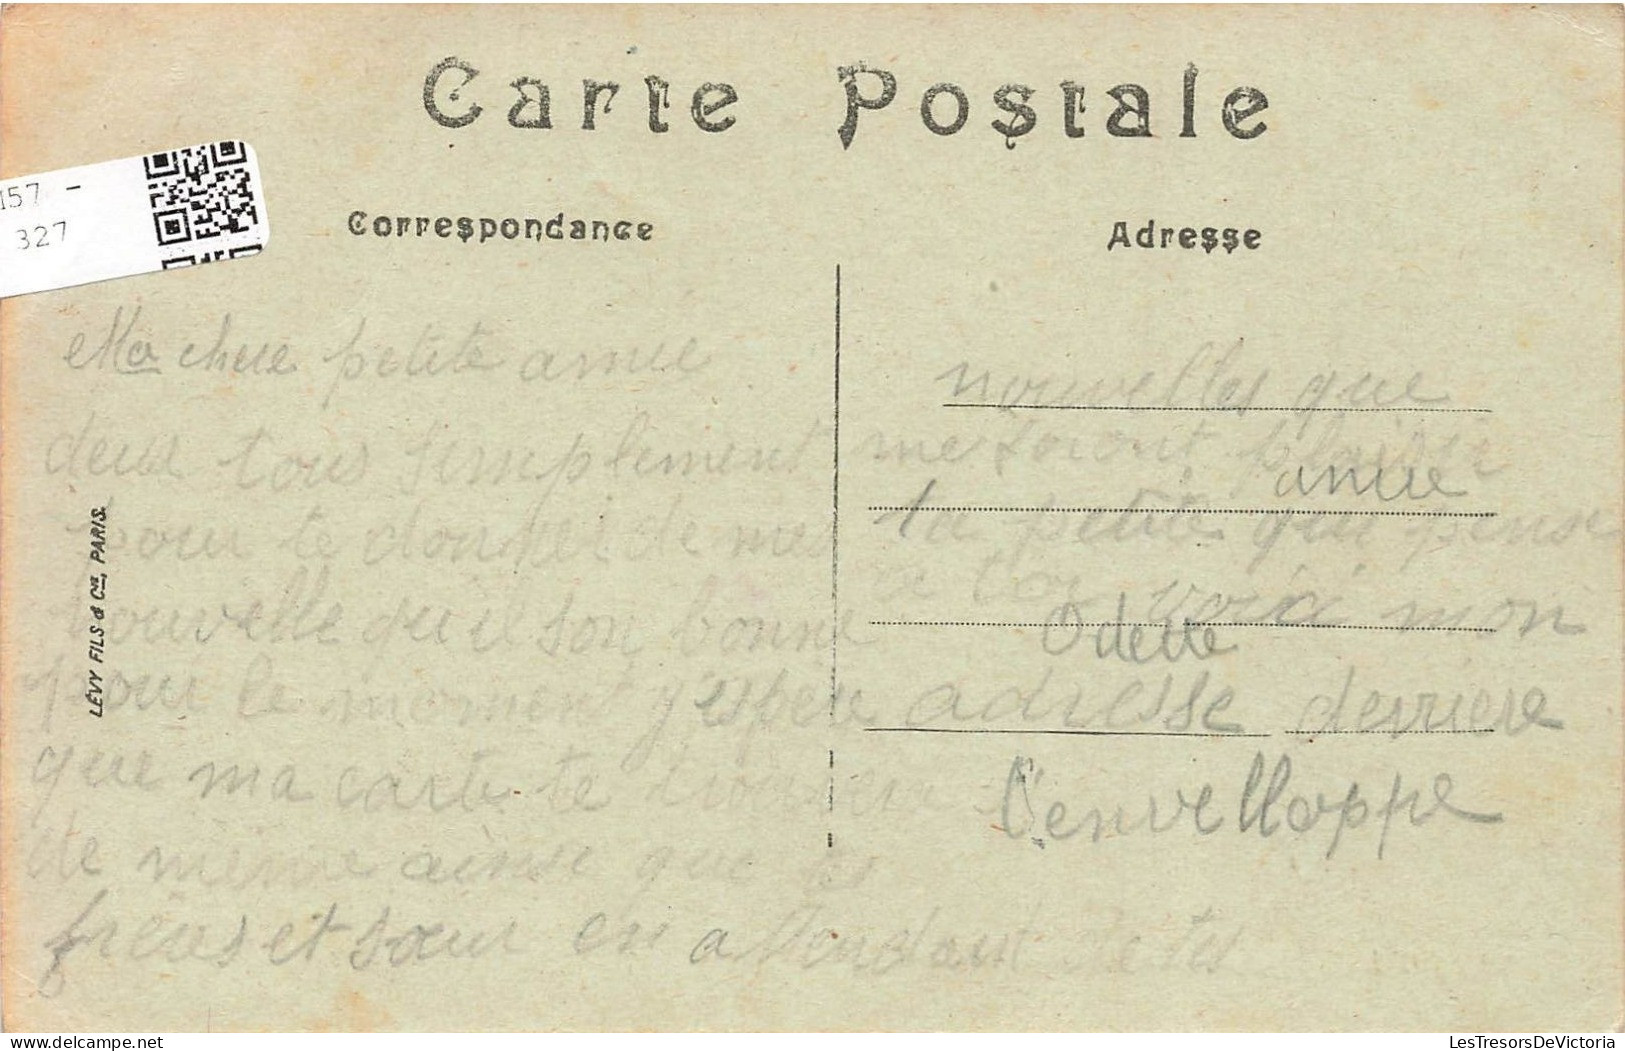 Carte Postale
157 -
327
Correspondance
Adresse
Ma chere petite amie
deux tous simplement
pour te donner de mes
nouvelle qui son bonne
pour le moment j'espere
que ma carte te trouvera
de même ainsi que tes
frères et sœur en attendant de tes
nouvelles que
me feront plaisir
amie
ta petite qui pense
a toi voici mon
Odette
adresse derriere
l'envelloppe
LÉVY FILS & Cie, PARIS.
LesTresorsDeVictoria
delcampe.net